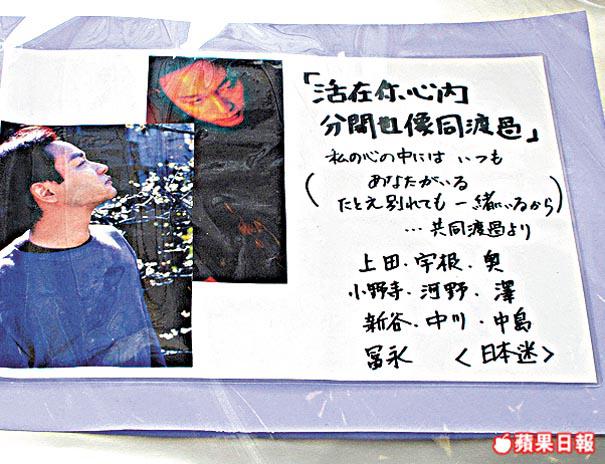 「活在你心内
分開也像同渡過」
私の心の中には いつも
あなたがいる
たとえ別れても 一緒にいるから
… 共同渡過より
上田・宇根・奥
小野寺・河野・澤
新谷・中川・中島
冨永 <日本迷>
蘋果日報